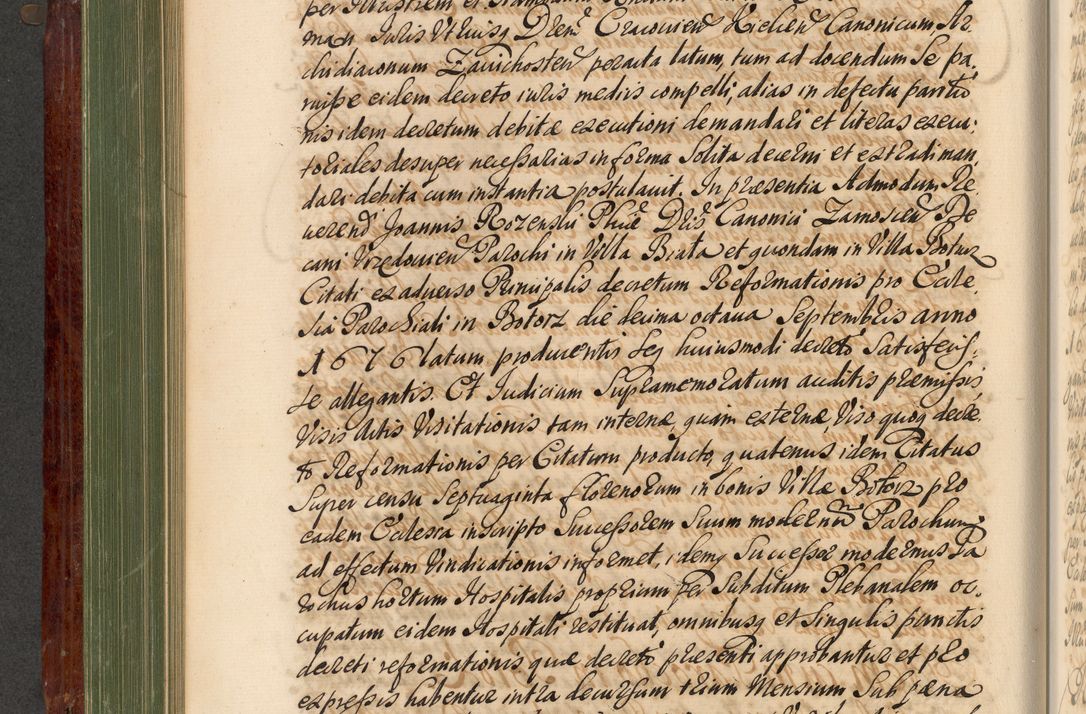 per Illustrem et
man Iuris Utriusq Dren Cracovien Kielcen Canonicum, Ar,
chidiaconum Zavichosten peracta latum, tum ad docendum Se pa,
ruisse eidem decreto iuris mediis compelli, alias in defectu paritio
nis idem decretum debitæ executioni demandari et literas execu:
toriales desuper necessarias in forma Solita decerni et extradi man,
dari debita cum instantia postulavit. In præsentia Admodum Re,
verend Joannis Rozenski Phiæ Dris Canonici Zamoscien De
cani Urzedovien Parochi in Villa Biała et quondam in Villa Botorz
Citati ex adverso Principalis decretum Reformationis pro Eccle,
sia Parochiali in Botorz die decima octava Septembris anno
1676 latum, producentis seq huiusmodi decreto Satisfecis,
se allegantis. Et Iudicium Supramemoratum auditis præmissis
Visis Actis Visitationis tam internæ, quam externæ, Viso quoq decre,
to Reformationis per Citatum producto, quatenus idem Citatus
Super censu Septuaginta florenorum in bonis Villæ Botorz pro
eadem Ecclesia inscripto Successorem Suum modernum Parochum
ad effectum Vindicationis informet, idemq Successor modernus Pa
rochus hortum Hospitalis proprium per Subditum Plebanalem oc,
cupatum eidem Hospitali restituat, omnibusq et Singulis punctis
decreti reformationis quæ decreto præsenti approbantur et pro
expressis habentur intra decursum trium Mensium Sub pæna